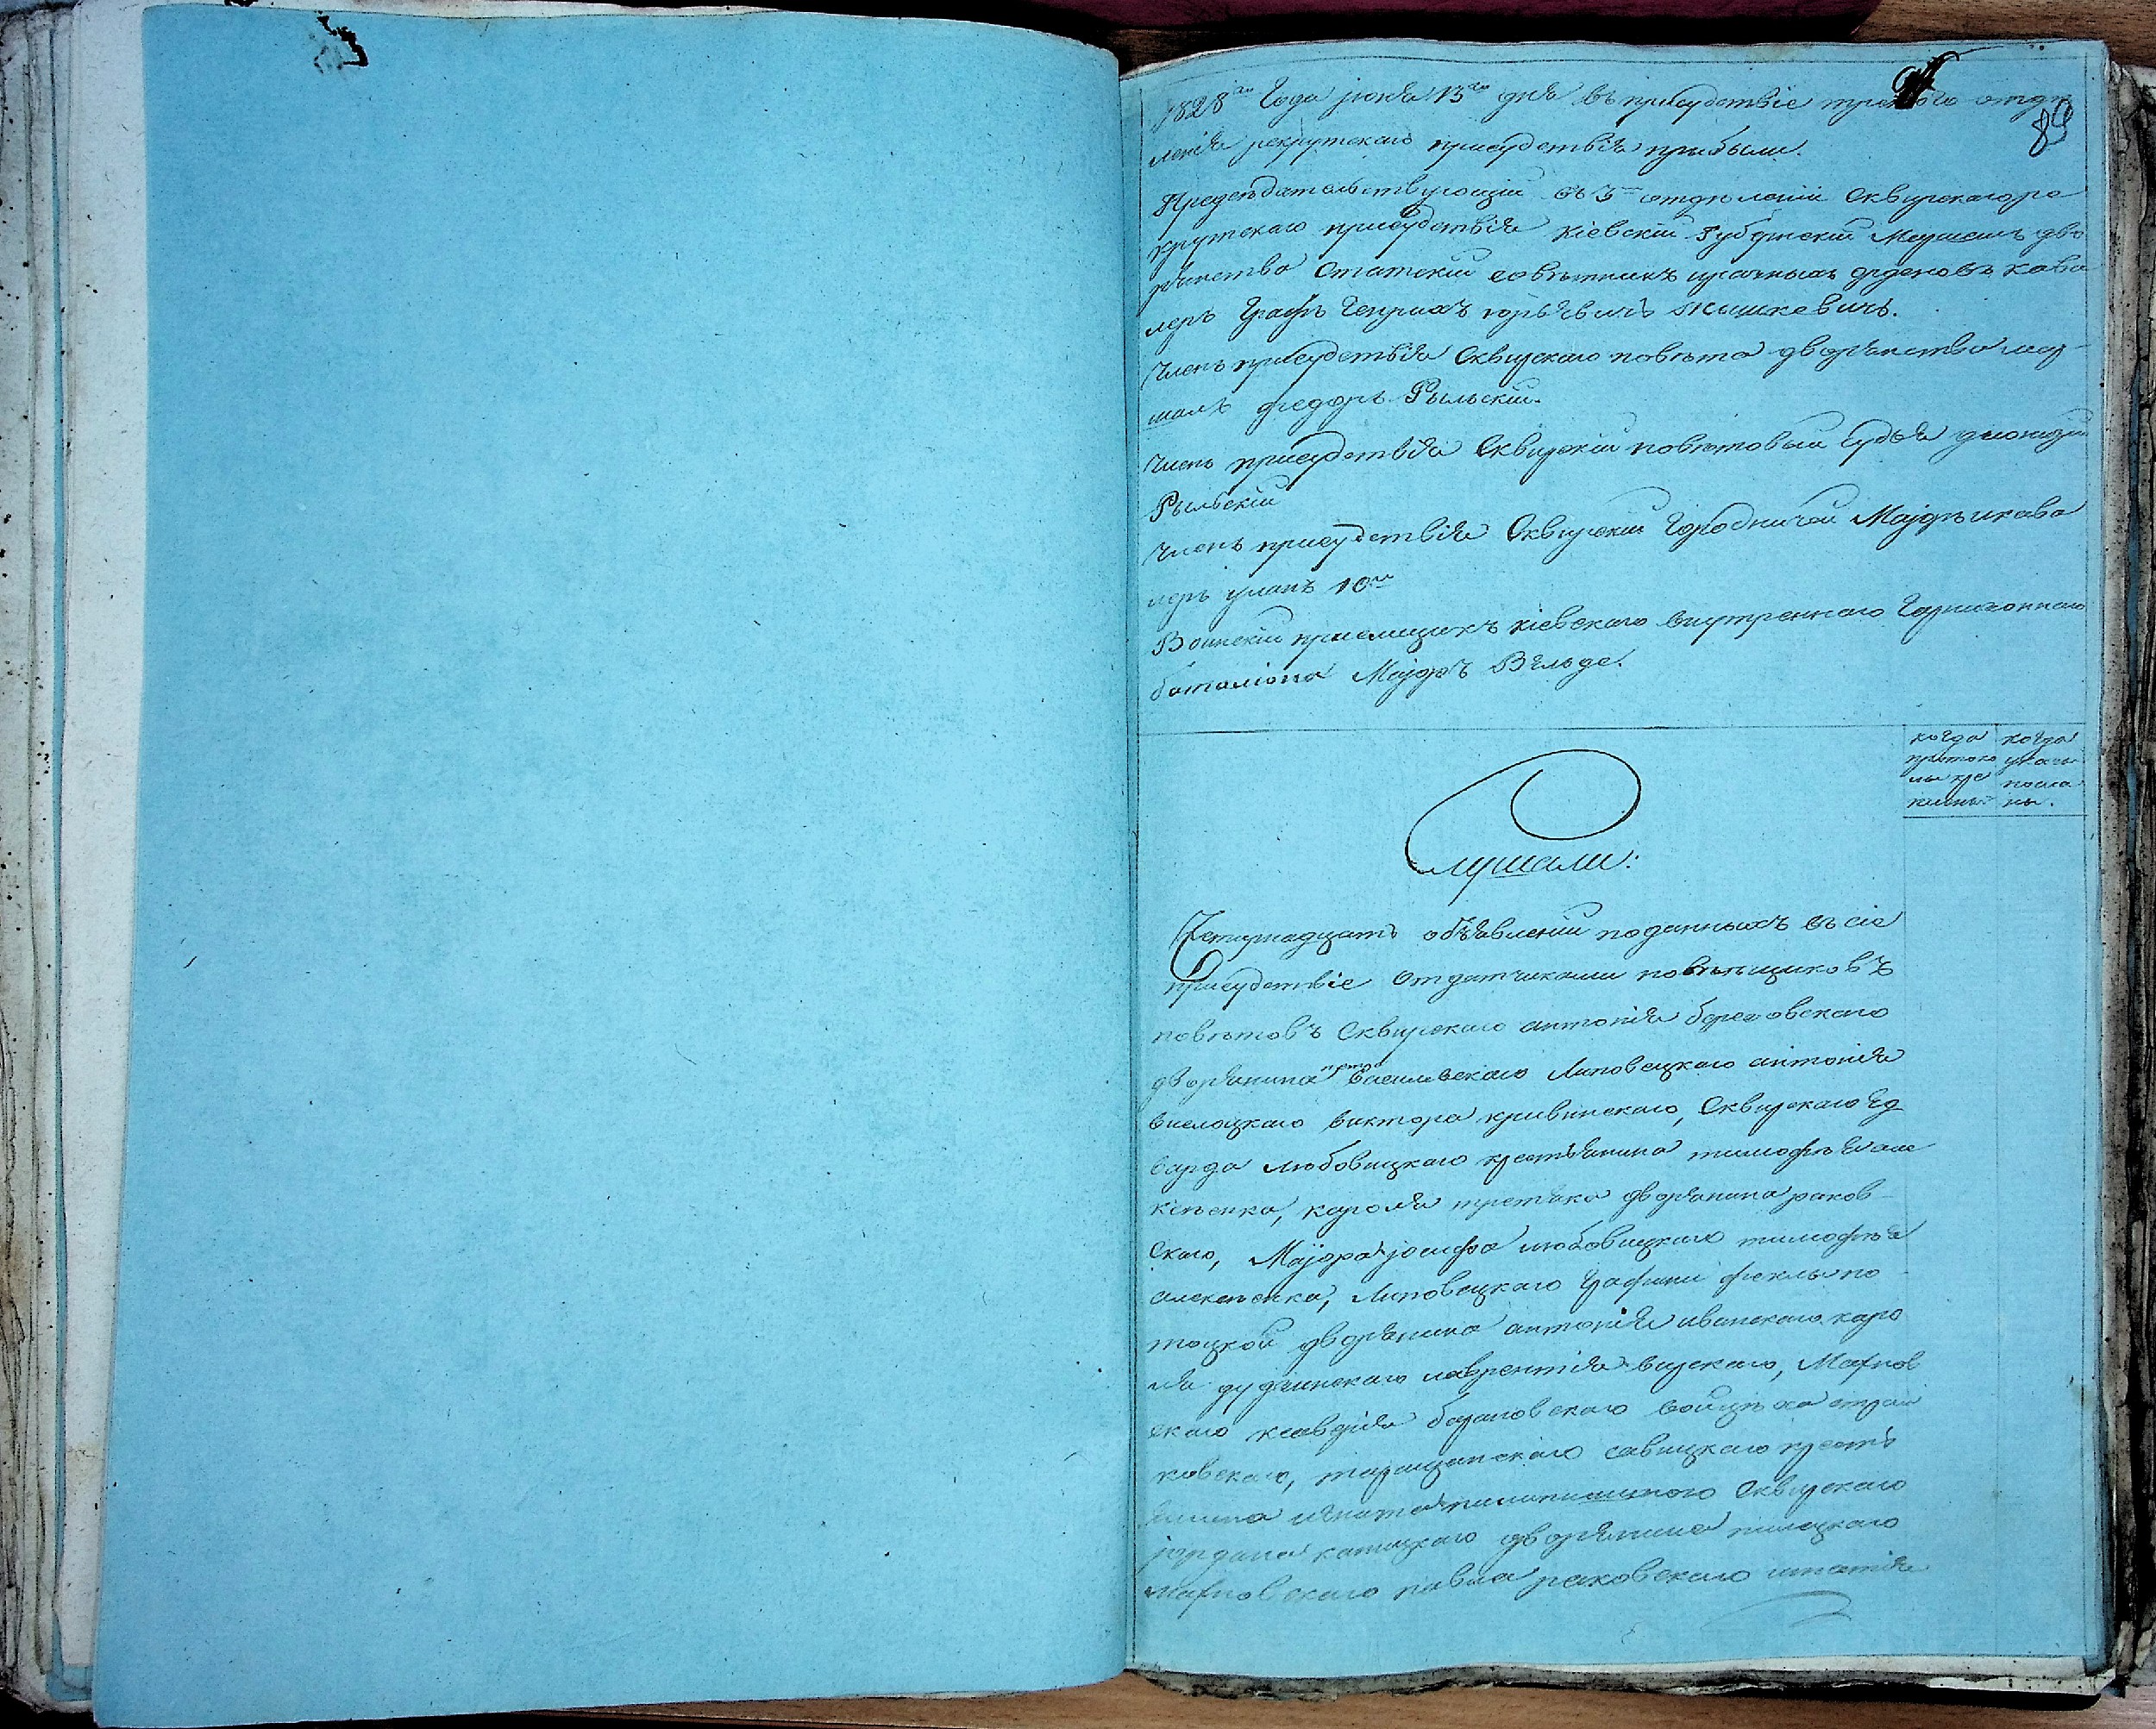 89
1828го Года июня 15го дня въ присудствіе третьего отдѣ
ленія рекрутскаго присудствія прибыли.
Предсѣдательствующій въ 3мъ отдѣленіи Сквирскаго ре
крутскаго присудствія Кіевскій Губернскій Маршалъ дво
рянства Статскій совѣтникъ и разныхъ орденовъ кава
леръ Графъ Генрихъ
Членъ присудствія Сквирскаго повѣта дворянства мар
шалъ Федоръ Рыльскій.
Членъ присудствія Сквирскій повѣтовый Судья
Рыльскій
Членъ присудствія Сквирскій Городничій Маіоръ и кава
леръ 10й
Воинскій пріемщикъ Кіевскаго внутренняго Гарнизоннаго
баталіона Маіоръ Вильде.
когда
протоко
лы
когда
указы
посла
ны.
Слушали:
Четырнадцать объявленій поданныхъ въ сіе
присудствіе отдатчиками повѣтовъ
повѣтовъ Сквирскаго антонія березовскаго
дворянина петра василевскаго Липовецкаго антонія
виктора кривинскаго, Сквирскаго Ед
варда любовицкаго крестьянина тимофѣя але
ксѣенка, кароля третяка дворянина раков
скаго, Маіора іосифа любовицкаго тимофѣя
алексѣенка, Липовецкаго Графини феклы по
тоцкой дворянина антонія иванскаго каро
ля лаврентія Махнов
скаго барановскаго войцѣха
ковскаго, таращанскаго савицкаго кресть
янина игната Сквирскаго
іордана дворянина
махновскаго павла раковскаго игнатія